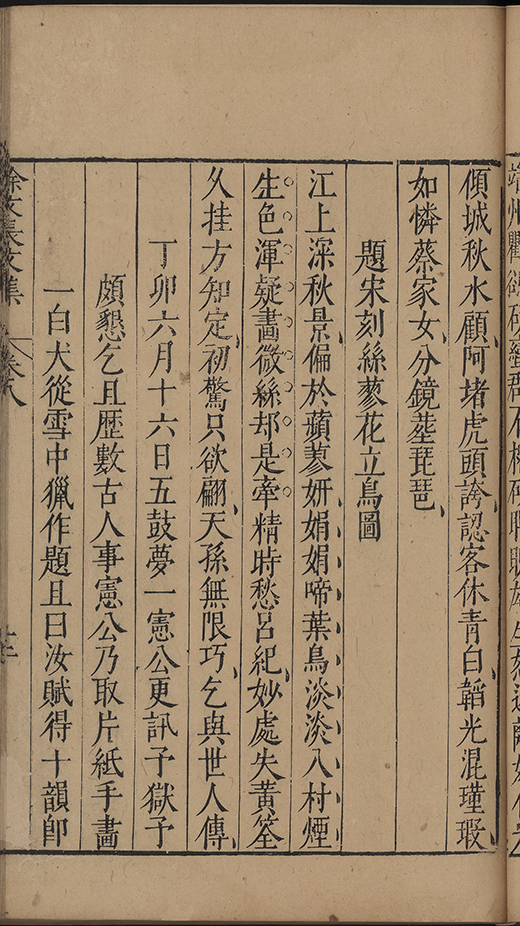 傾城秋水顧阿堵虎頭誇認客休青白韜光混瑾瑕
如憐蔡家女分鏡塟琵琶
題宋刻絲蓼花立鳥圖
江上深秋景偏於蘋蓼妍娟娟啼葉鳥淡淡入村煙
生色渾疑畫微絲却是牽精時愁呂紀妙處失黄筌
久挂方知定初驚只欲翩天孫無限巧乞與世人傳
丁卯六月十六日五鼓夢一憲公更訊予獄予
頗懇乞且歷數古人事憲公乃取片紙手畵
一白犬從雪中獵作題且曰汝賦得十韻卽
徐文長文集 卷八